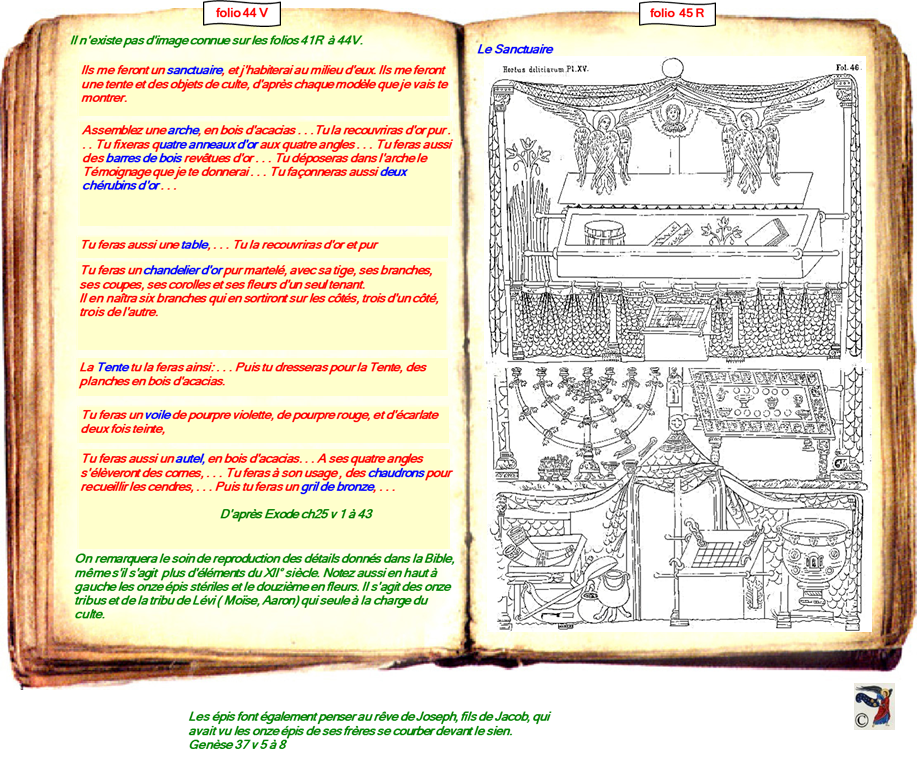 folio 44 V
Il n'existe pas d'image connue sur les folios 41R à 44V.
Ils me feront un sanctuaire, et j'habiterai au milieu d'eux. Ils me feront
une tente et des objets de culte, d'après chaque modèle que je vais te
montrer.
Assemblez une arche, en bois d'acacias . . . Tu la recouvriras d'or pur .
. . Tu fixeras quatre anneaux d'or aux quatre angles . . . Tu feras aussi
des barres de bois revêtues d'or . . . Tu déposeras dans l'arche le
Témoignage que je te donnerai . . . Tu façonneras aussi deux
chérubins d'or . . .
Tu feras aussi une table, . . . Tu la recouvriras d'or et pur
Tu feras un chandelier d'or pur martelé, avec sa tige, ses branches,
ses coupes, ses corolles et ses fleurs d'un seul tenant.
Il en naîtra six branches qui en sortiront sur les côtés, trois d'un côté,
trois de l'autre.
La Tente tu la feras ainsi: . . . Puis tu dresseras pour la Tente, des
planches en bois d'acacias.
Tu feras un voile de pourpre violette, de pourpre rouge, et d'écarlate
deux fois teinte,
Tu feras aussi un autel, en bois d'acacias. . . A ses quatre angles
s'élèveront des cornes, . . . Tu feras à son usage , des chaudrons pour
recueillir les cendres, . . . Puis tu feras un gril de bronze, . . .
D'après Exode ch25 v 1 à 43
On remarquera le soin de reproduction des détails donnés dans la Bible,
même s'il s'agit plus d'éléments du XII° siècle. Notez aussi en haut à
gauche les onze épis stériles et le douzième en fleurs. Il s'agit des onze
tribus et de la tribu de Lévi ( Moïse, Aaron) qui seule à la charge du
culte.
folio 45 R
Le Sanctuaire
Hortus deliciarum Pl.XV.
Fol. 46.
Les épis font également penser au rêve de Joseph, fils de Jacob, qui
avait vu les onze épis de ses frères se courber devant le sien.
Genèse 37 v 5 à 8
©